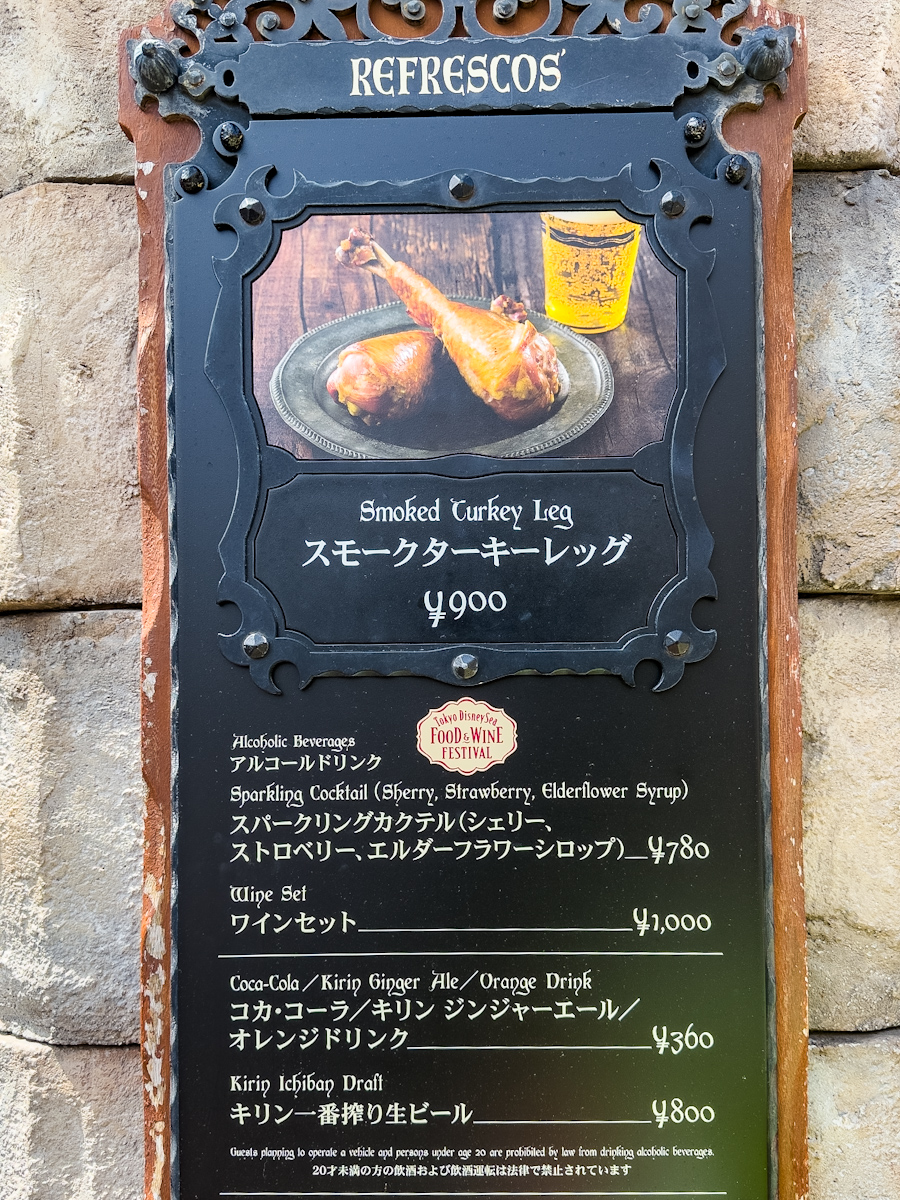 REFRESCOS'
Smoked Turkey Leg
スモークターキーレッグ
¥900
Tokyo DisneySea
FOOD & WINE
FESTIVAL
Alcoholic Beverages
アルコールドリンク
Sparkling Cocktail (Sherry, Strawberry, Elderflower Syrup)
スパークリングカクテル(シェリー、
ストロベリー、エルダーフラワーシロップ) ¥780
Wine Set
ワインセット ¥1,000
Coca-Cola／Kirin Ginger Ale／Orange Drink
コカ・コーラ／キリン ジンジャーエール／
オレンジドリンク ¥360
Kirin Ichiban Draft
キリン一番搾り生ビール ¥800
Guests planning to operate a vehicle and persons under age 20 are prohibited by law from drinking alcoholic beverages.
20才未満の方の飲酒および飲酒運転は法律で禁止されています